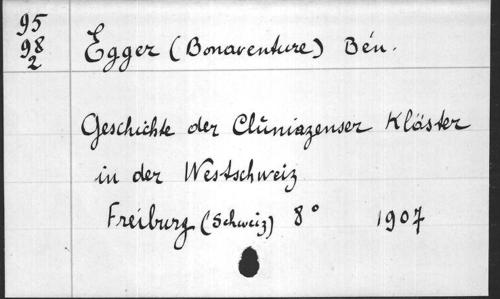 95
98
2
Egger (Bonaventure) Bén.
Geschichte der Cluniazenser Klöster
in der Westschweiz
Freiburg (Schweiz) 8° 1907